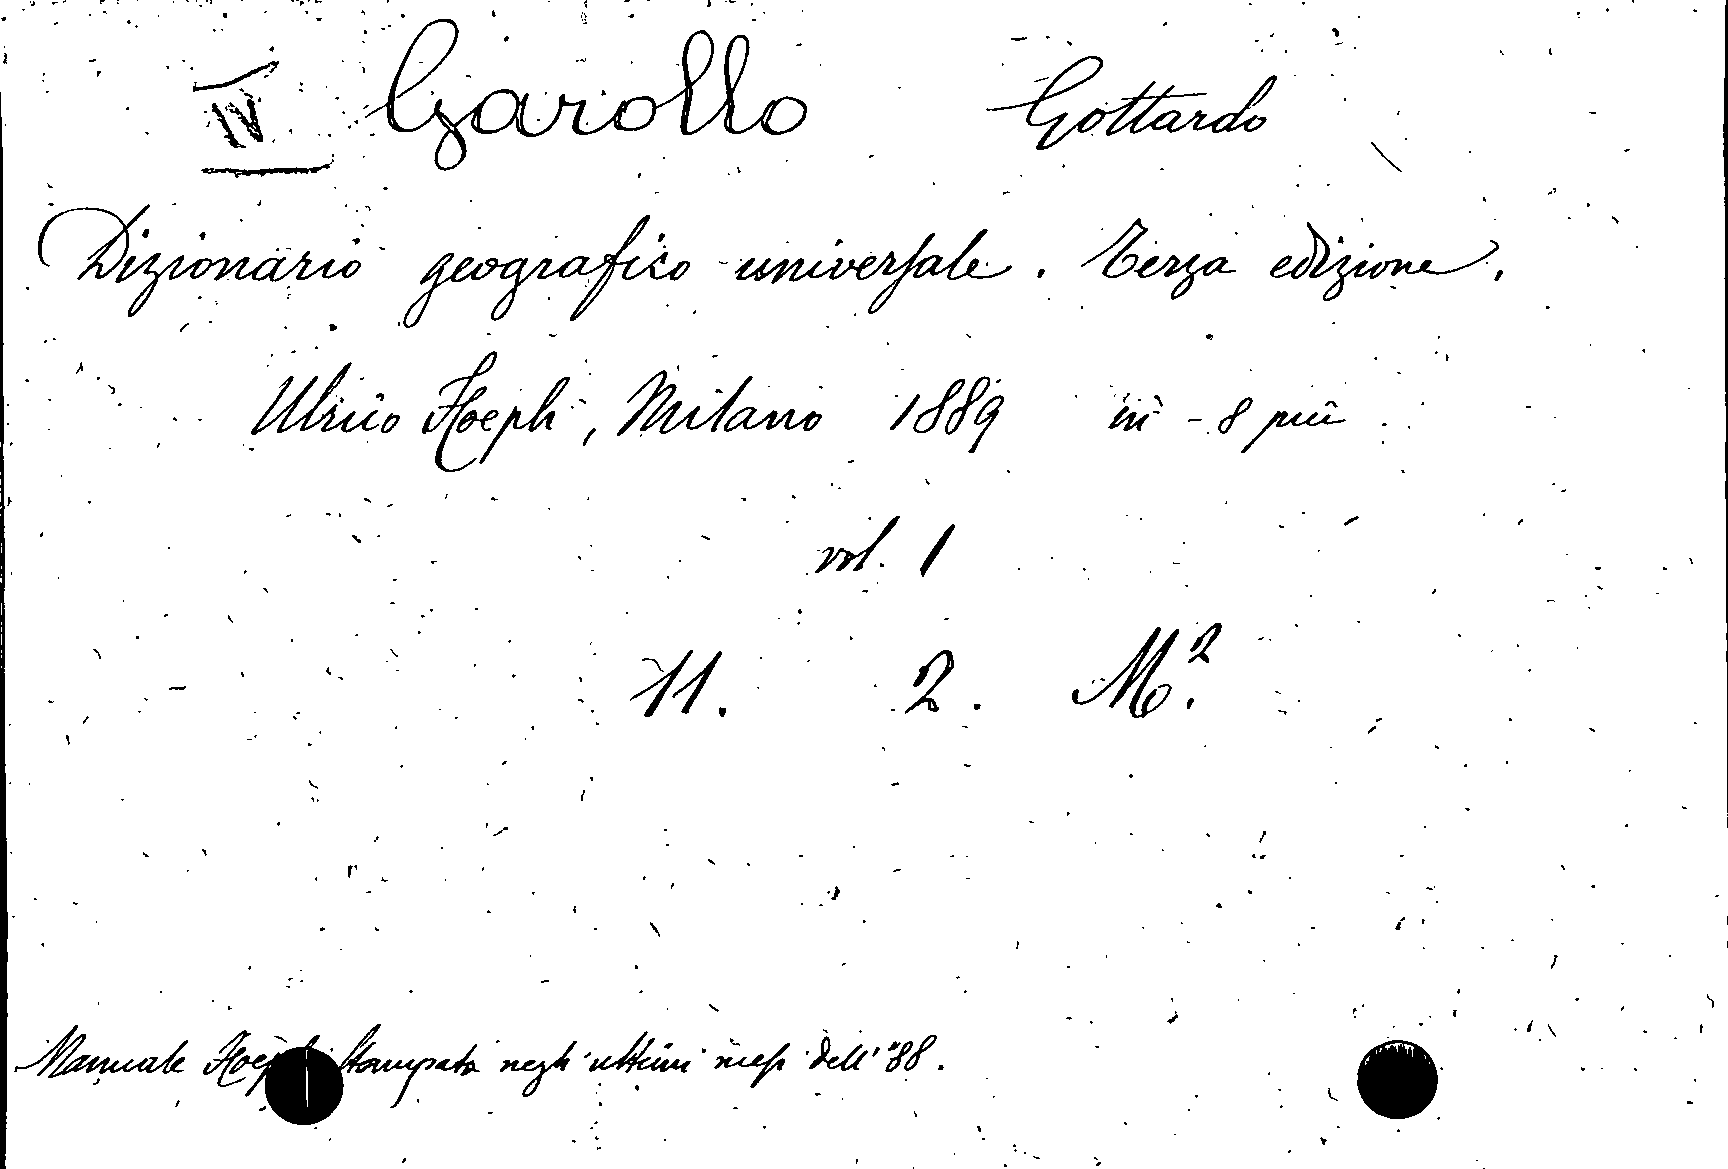 IV Garollo Gottardo
Dizionario geografico universale. Terza edizione.
Ulrico Hoepli, Milano 1889 in - 8 picc
vol. 1
11. 2. M².
Manuale Hoepli stampato negli ultimi mesi dell' '88.